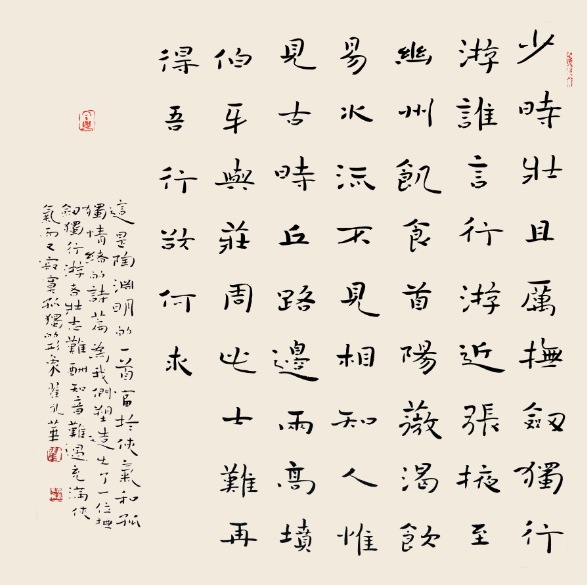 少時壯且厲撫劔獨行
游誰言行游近張掖至
幽州飢食首陽薇渴飲
易水流不見相知人惟
見古時丘路邊兩高墳
伯牙與莊周此士難再
得吾行欲何求
這是陶淵明的一首富於俠氣和孤
獨情緒的詩篇為我們塑造出了一位撫
劔獨行游壯志難酬知音難遇充滿俠
氣而又寂寞孤獨的形象